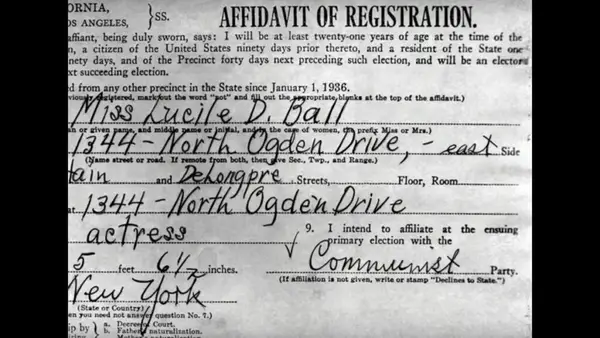 ORNIA,
OS ANGELES, } SS. AFFIDAVIT OF REGISTRATION.
affiant, being duly sworn, says: I will be at least twenty-one years of age at the time of the
n, a citizen of the United States ninety days prior thereto, and a resident of the State one
ninety days, and of the Precinct forty days next preceding such election, and will be an elector
xt succeeding election.
ed from any other precinct in the State since January 1, 1936.
viously registered, mark out the word "not" and fill out the appropriate blanks at the top of the affidavit.)
Miss Lucile D. Ball
an or given name, and middle name or initial, and in the case of women, the prefix Miss or Mrs.)
1344 - North Ogden Drive, - east Side
(Name street or road. If remote from both, then give Sec., Twp., and Range.)
tain and DeLongpre Streets, Floor, Room
at 1344 - North Ogden Drive
actress
9. I intend to affiliate at the ensuing
primary election with the
5 feet 6½ inches. Communist Party.
(If affiliation is not given, write or stamp "Declines to State.")
New York
(State or Country)
en you need not answer question No. 7.)
ip by } a. Decree of Court.
b. Father's naturalization.